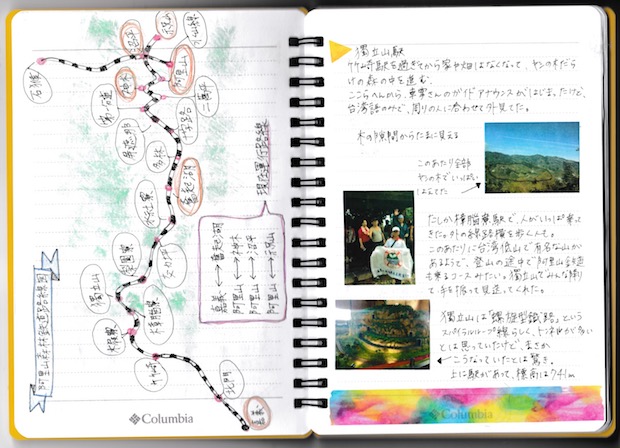 阿里山森林鐵道路線図
嘉義
北門
竹崎
木屐寮
樟腦寮
獨立山
梨園寮
交力坪
水社寮
奮起湖
多林
十字路
二萬坪
神木
阿里山
沼平
祝山
石猴
現在運行路線
嘉義 ↔ 奮起湖
阿里山 ↔ 神木
阿里山 ↔ 沼平
阿里山 ↔ 祝山
Columbia
獨立山駅
竹崎駅を過ぎてから家や畑はなくなって、ヤシの木だら
けの森の中を進む。
ここらへんから、車掌さんのガイドアナウンスがはじまったけど、
台湾語のみで、周りの人に合わせて外見てた。
木の隙間からたまに見える
このあたり全部
ヤシの木でいっぱい
はえてた
たしか樟腦寮駅で、人がいっぱい乗って
きた。外の線路横を歩く人も。
このあたりに台湾低山で有名な山が
あるようで、登山の途中で阿里山鉄道
も乗るコースみたい。獨立山でみんな降り
て手を振って見送ってくれた。
獨立山は「螺旋型鐵路」という
スパイラルループ線らしく、トンネルが多い
とは思っていたけど、まさか
こうなっていたとは驚き。
上に駅があって、標高は741m
Columbia